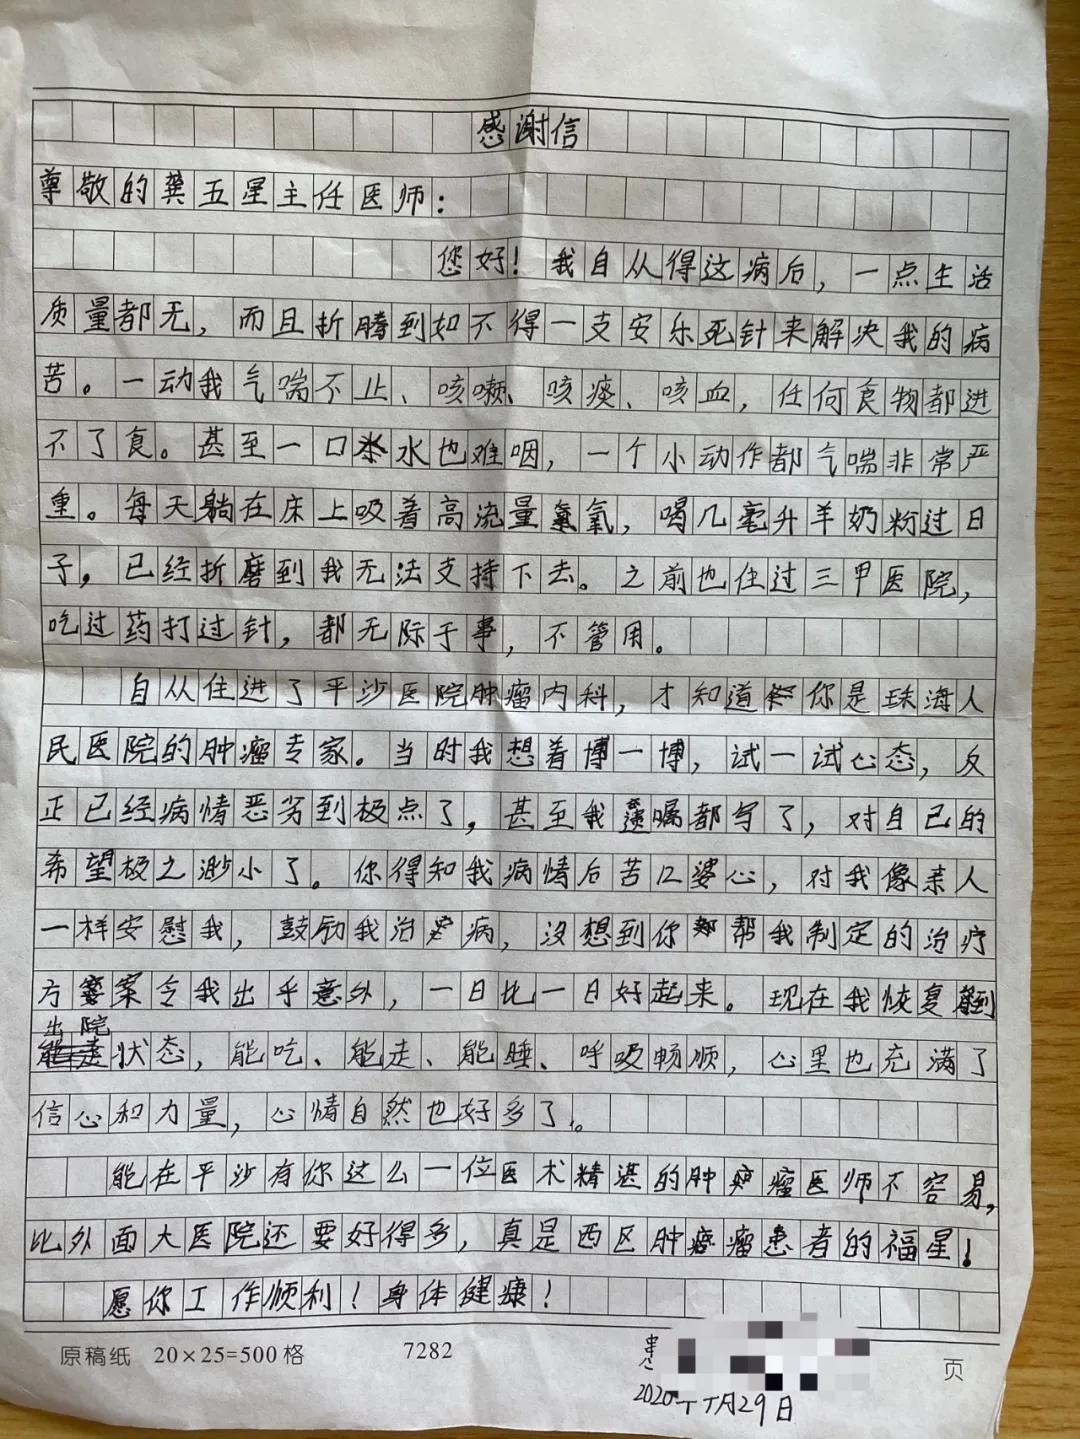 感谢信
尊敬的龚五星主任医师：
您好！我自从得这病后，一点生活
质量都无，而且折腾到如不得一支安乐死针来解决我的病
苦。一动我气喘不止、咳嗽、咳痰、咳血，任何食物都进
不了食。甚至一口水也难咽，一个小动作都气喘非常严
重。每天躺在床上吸着高流量氧，喝几毫升羊奶粉过日
子，已经折磨到我无法支持下去。之前也住过三甲医院，
吃过药打过针，都无际于事，不管用。
自从住进了平沙医院肿瘤内科，才知道你是珠海人
民医院的肿瘤专家。当时我想着博一博，试一试心态，反
正已经病情恶劣到极点了，甚至我遗嘱都写了，对自己的
希望极之渺小了。你得知我病情后苦口婆心，对我像亲人
一样安慰我，鼓励我治病，没想到你帮我制定的治疗
方案令我出乎意外，一日比一日好起来。现在我恢复到
出院
状态，能吃、能走、能睡、呼吸畅顺，心里也充满了
信心和力量，心情自然也好多了。
能在平沙有你这么一位医术精湛的肿瘤医师不容易，
比外面大医院还要好得多，真是西区肿瘤患者的福星！
愿你工作顺利！身体健康！
原稿纸 20×25=500格 7282 页
2020年 月29日